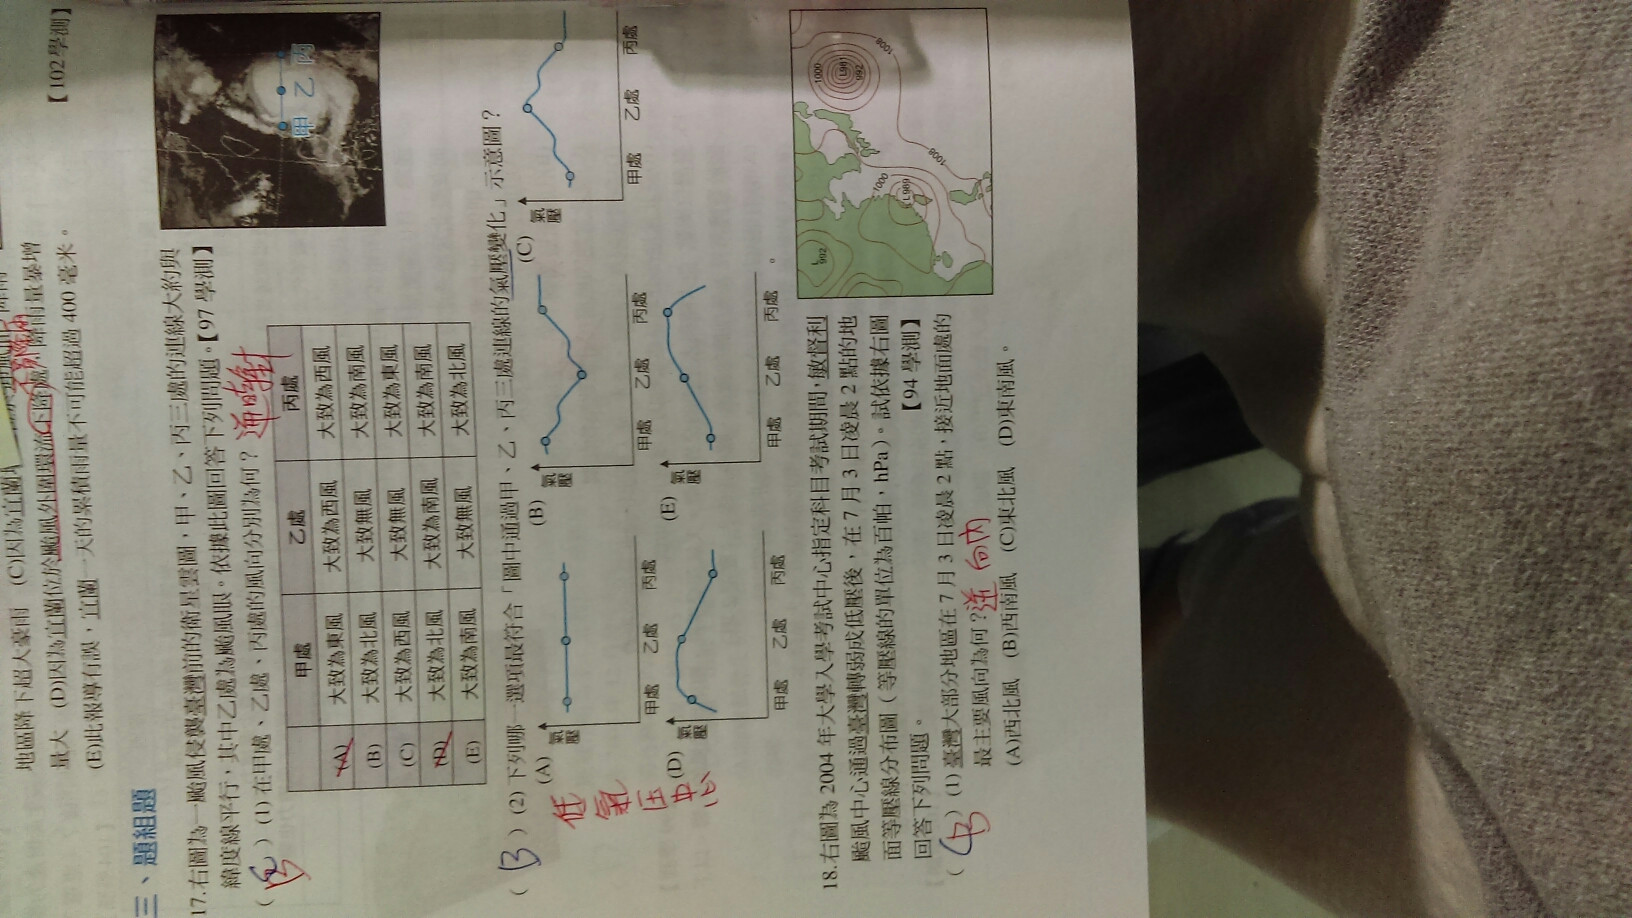 地區降下超大豪雨 (C)因為宜蘭
量大 (D)因為宜蘭位於颱風外圍環流下降處,降雨量暴增
(E)此報導有誤,宜蘭一天的累積雨量不可能超過 400 毫米。
【102 學測】
三、題組題
17.右圖為一颱風侵襲臺灣前的衛星雲圖,甲、乙、丙三處的連線大約與
緯度線平行,其中乙處為颱風眼。依據此圖回答下列問題。【97 學測】
甲 乙 丙
( B ) (1) 在甲處、乙處、丙處的風向分別為何?逆時針
甲處 乙處 丙處
(A) 大致為東風 大致為西風 大致為西風
(B) 大致為北風 大致無風 大致為南風
(C) 大致為西風 大致無風 大致為東風
(D) 大致為北風 大致為南風 大致為南風
(E) 大致為南風 大致無風 大致為北風
( B ) (2) 下列哪一選項最符合「圖中通過甲、乙、丙三處連線的氣壓變化」示意圖?
低氣壓中心
(A) 氣壓 甲處 乙處 丙處
(B) 氣壓 甲處 乙處 丙處
(C) 氣壓 甲處 乙處 丙處
(D) 氣壓 甲處 乙處 丙處
(E) 氣壓 甲處 乙處 丙處
。
18.右圖為 2004 年大學入學考試中心指定科目考試期間,敏督利
颱風中心通過臺灣轉弱成低壓後,在 7 月 3 日凌晨 2 點的地
面等壓線分布圖(等壓線的單位為百帕,hPa)。試依據右圖
回答下列問題。
【94 學測】
( B ) (1) 臺灣大部分地區在 7 月 3 日凌晨 2 點,接近地面處的
最主要風向為何?逆 向內
(A)西北風 (B)西南風 (C)東北風 (D)東南風。
1008
1000
992
1008
1000
L989
L
992